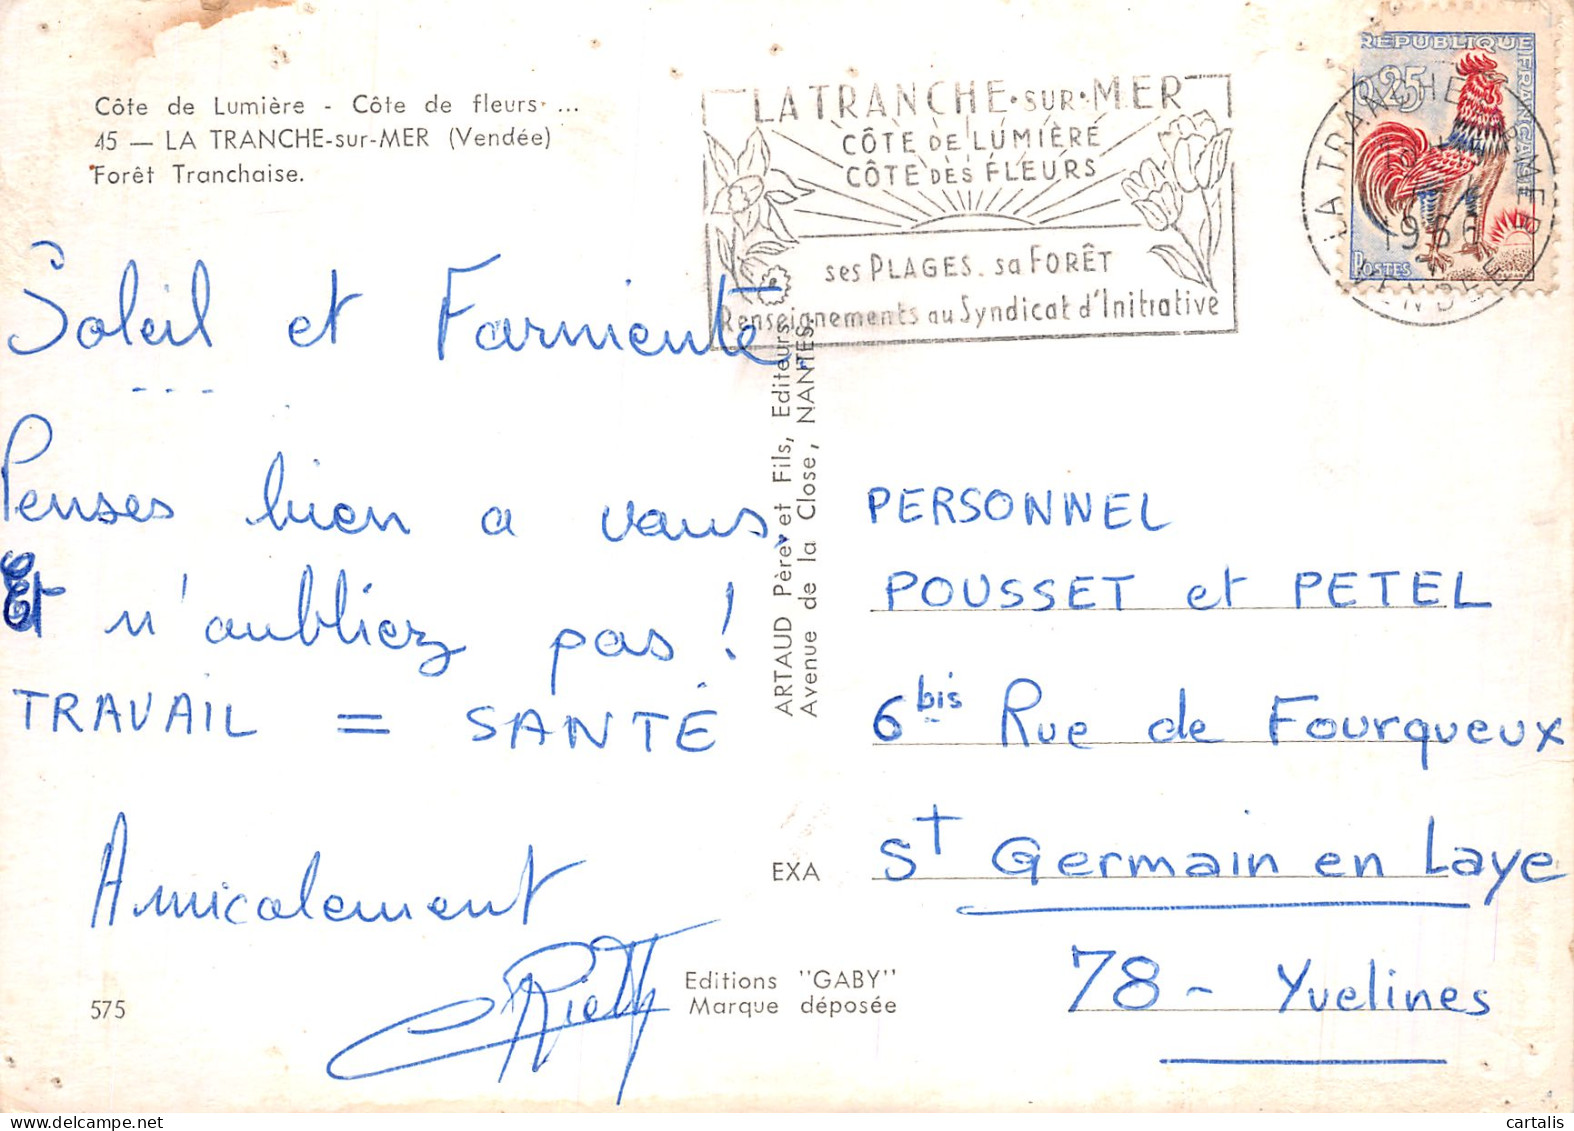 Côte de Lumière - Côte de fleurs ...
45 — LA TRANCHE-sur-MER (Vendée)
Forêt Tranchaise.
LA TRANCHE·SUR·MER
CÔTE DE LUMIÈRE
CÔTE DES FLEURS
ses PLAGES. sa FORÊT
Renseignements au Syndicat d'Initiative
RÉPUBLIQUE FRANÇAISE
0,25
POSTES
LA TRANCHE S MER
1966
VENDÉE
Soleil et Farniente.
- - -
Penses bien a vous,
Et n'aubliez pas !
TRAVAIL = SANTÉ
Amicalement
575
ARTAUD Père et Fils, Editeurs
Avenue de la Close, NANTES
EXA
Editions "GABY"
Marque déposée
PERSONNEL
POUSSET et PETEL
6 bis Rue de Fourqueux
St Germain en Laye
78 - Yvelines
cartalis